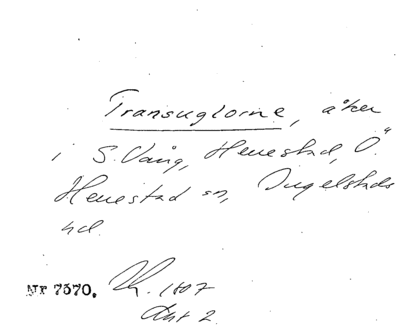 Transuglorne, åker
i S. Vång, Herrestad, Ö.
Herrestad sn, Ingelstads
hd.
Nr 7570. 1807
Akt 2